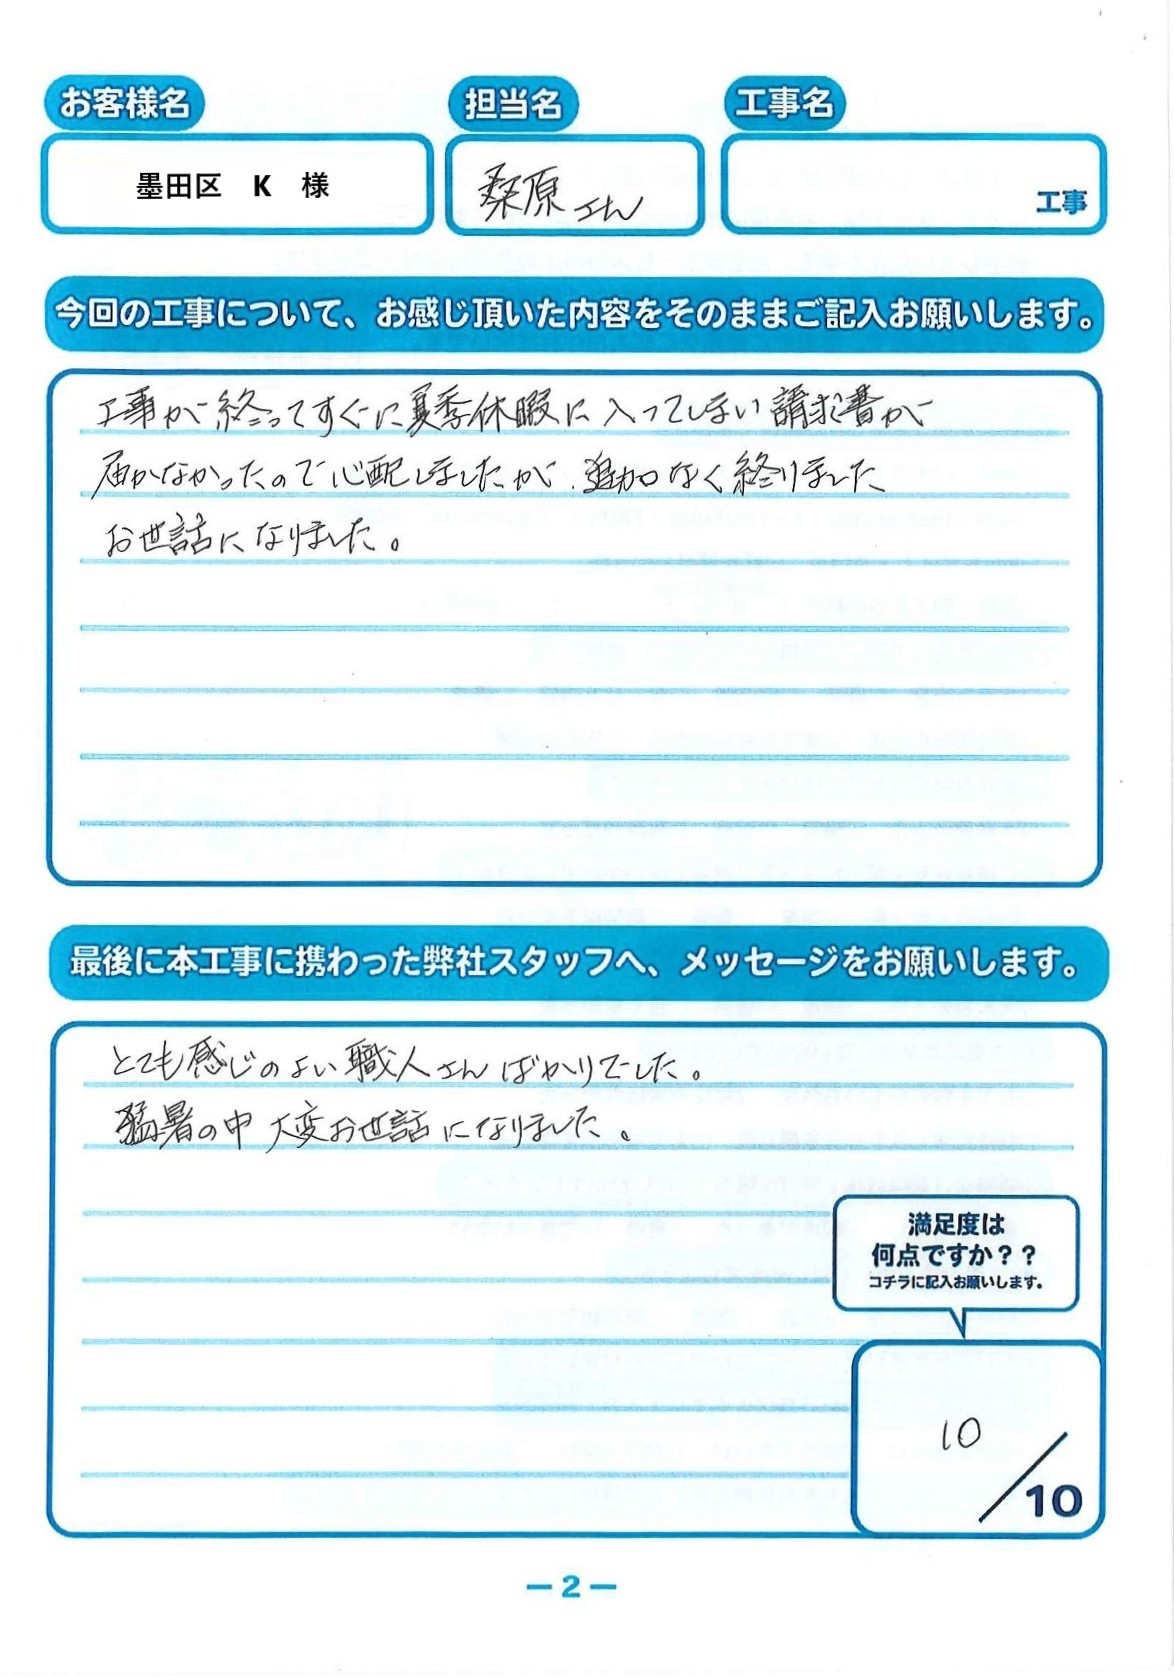 お客様名
担当名
工事名
墨田区 K 様
桑原さん
工事
今回の工事について、お感じ頂いた内容をそのままご記入お願いします。
工事が終ってすぐに夏季休暇に入ってしまい請求書が
届かなかったので心配しましたが、追加なく終りました
お世話になりました。
最後に本工事に携わった弊社スタッフへ、メッセージをお願いします。
とても感じのよい職人さんばかりでした。
猛暑の中大変お世話になりました。
満足度は
何点ですか？？
コチラに記入お願いします。
10
/10
ー2ー